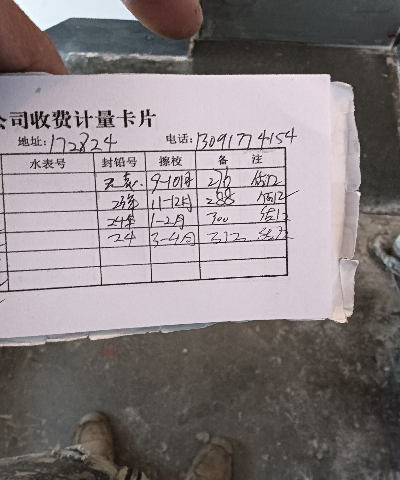 公司收费计量卡片
地址:172824 电话:13091774154
水表号 封铅号 擦校 备 注
9-10月 276 估12
23年 11-12月 288 估12
24年 1-2月 300 估12
24 3-4月 312 估12